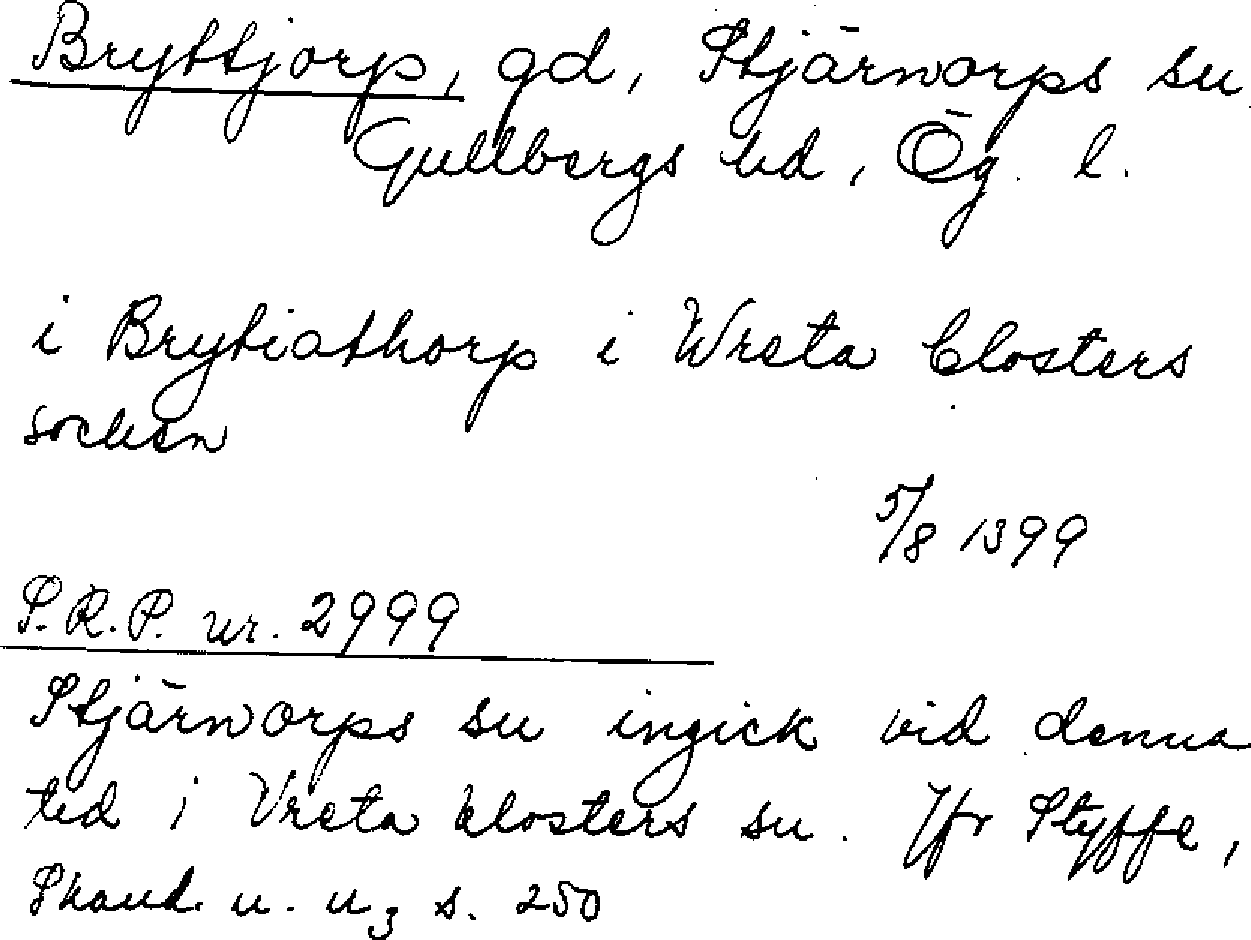 Bryttjorp, gd, Stjärnorps sn
Gullbergs hd, Ög. l.
i Brytiathorp i Wreta Closters
socken
5/8 1399
S.R.P. nr. 2999
Stjärnorps sn ingick vid denna
tid i Vreta klosters sn. Jfr Styffe,
Skand. u. u3 s. 250